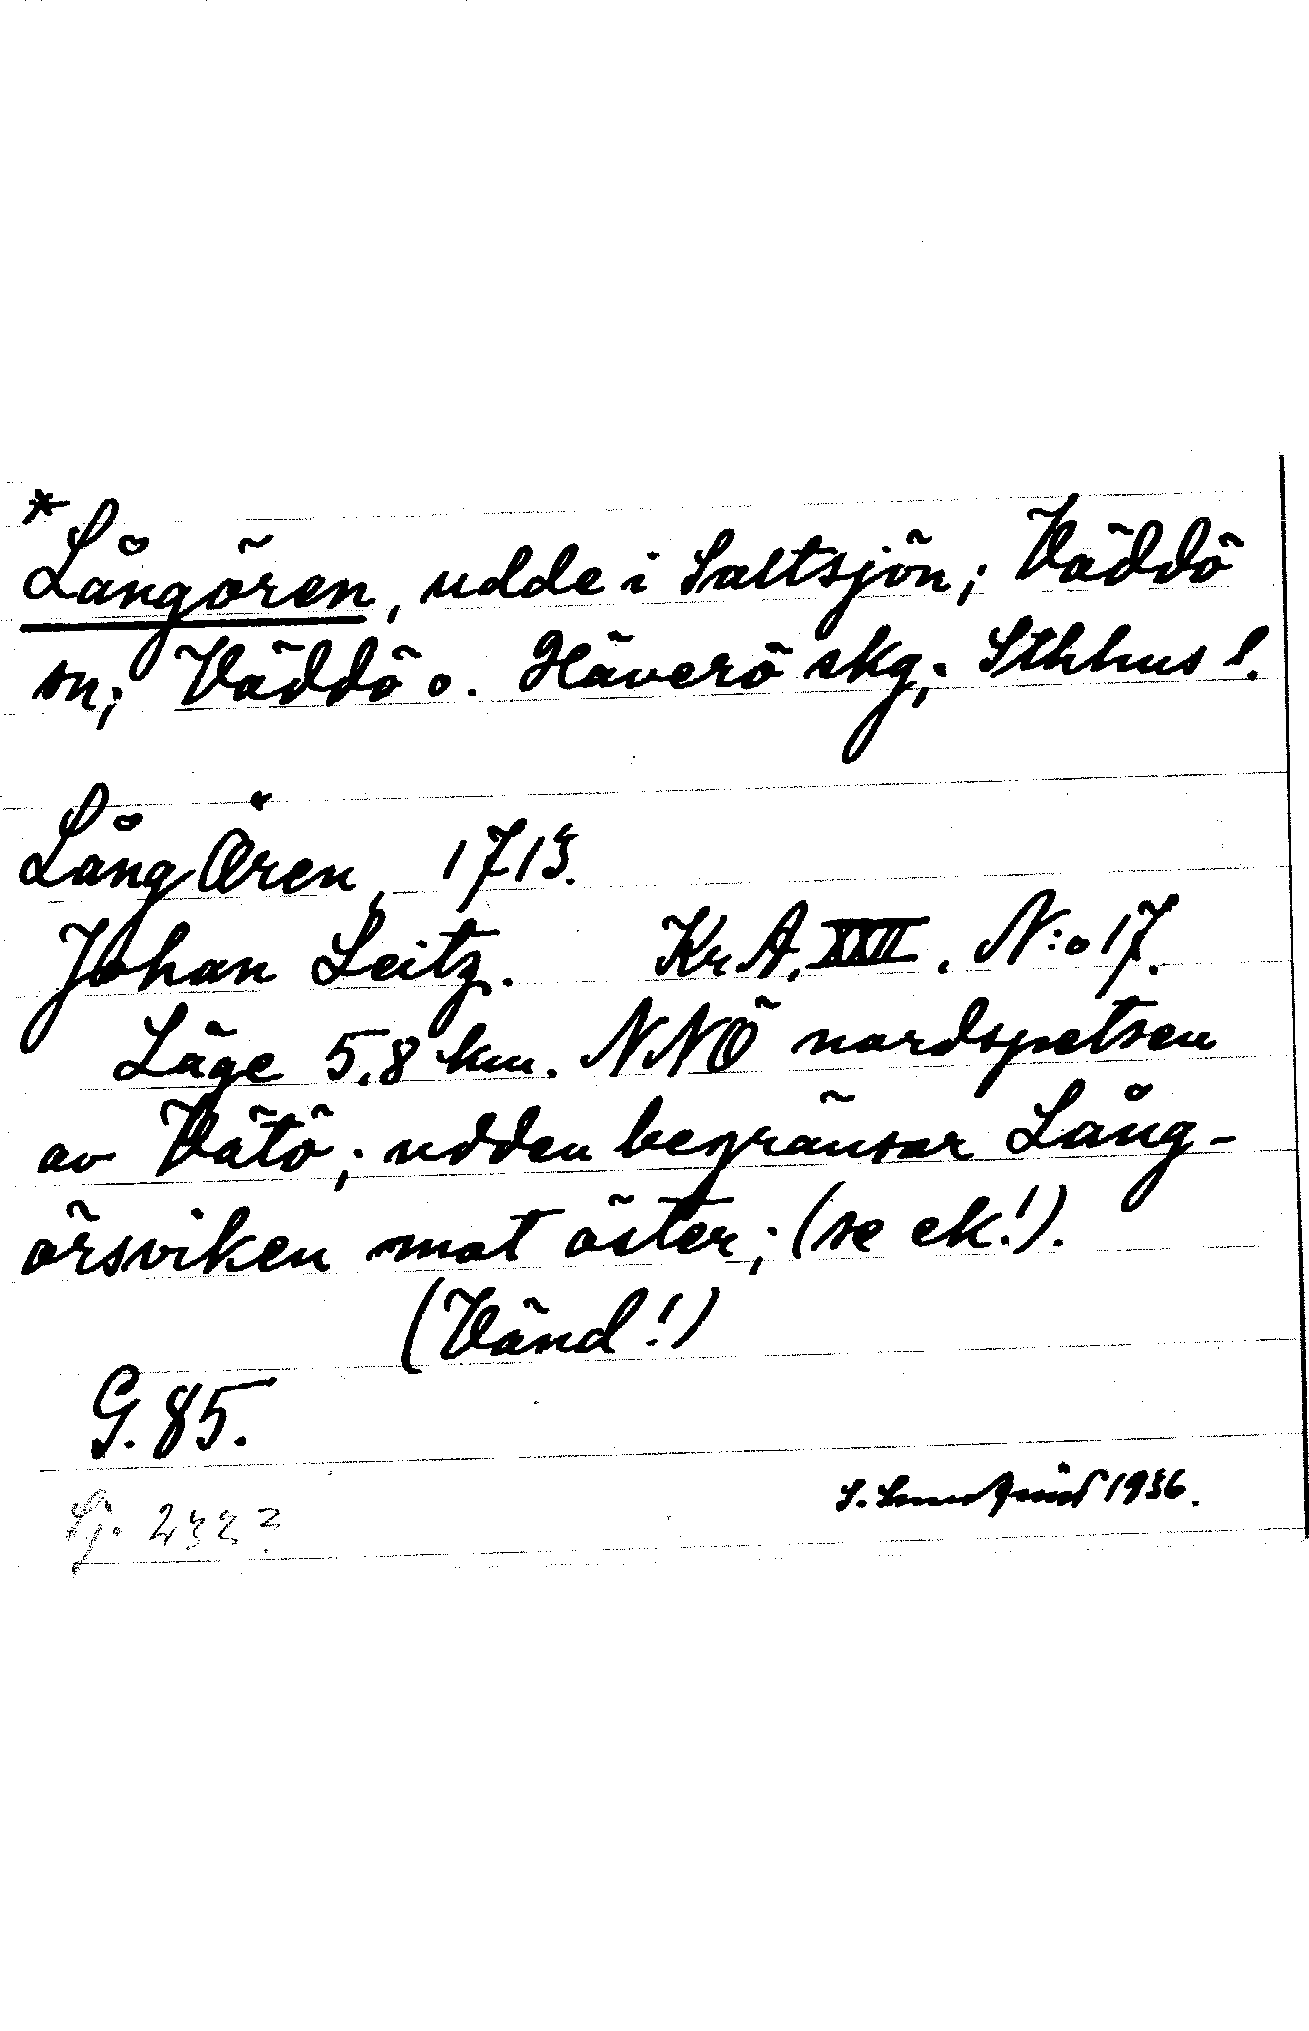 *
Långören, udde i Saltsjön; Väddö
sn; Väddö o. Häverö skg; Sthlms l.
Lång Ören, 1713.
Johan Leitz. Kr A. XXII. N:o 17.
Läge 5,8 km. NNÖ nordspetsen
av Vätö; udden begränsar Lång-
örsviken mot öster; (se ek!).
(Vänd!)
G. 85.
1936.